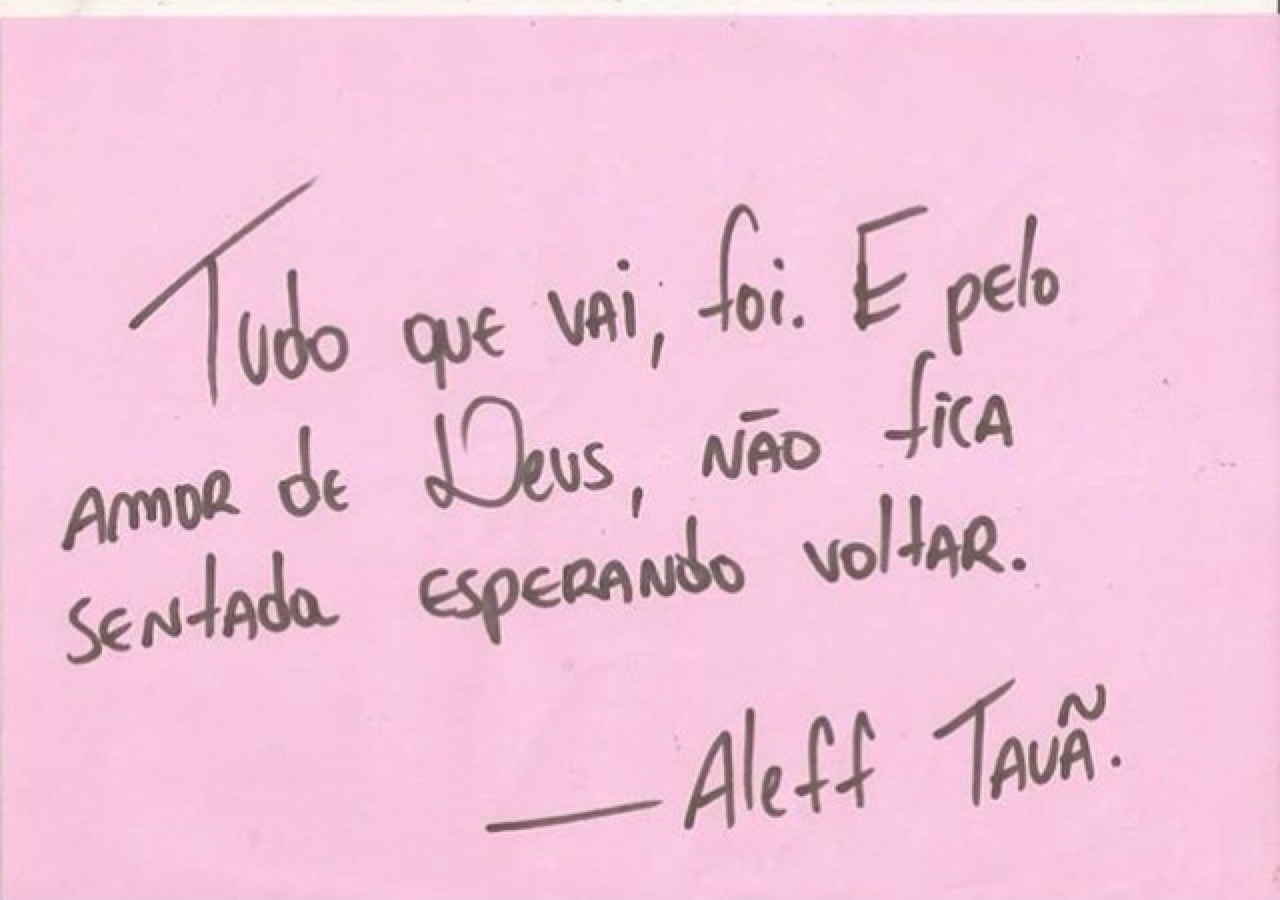 Tudo que vai, foi. E pelo
amor de Deus, não fica
sentada esperando voltar.
— Aleff Tauã.